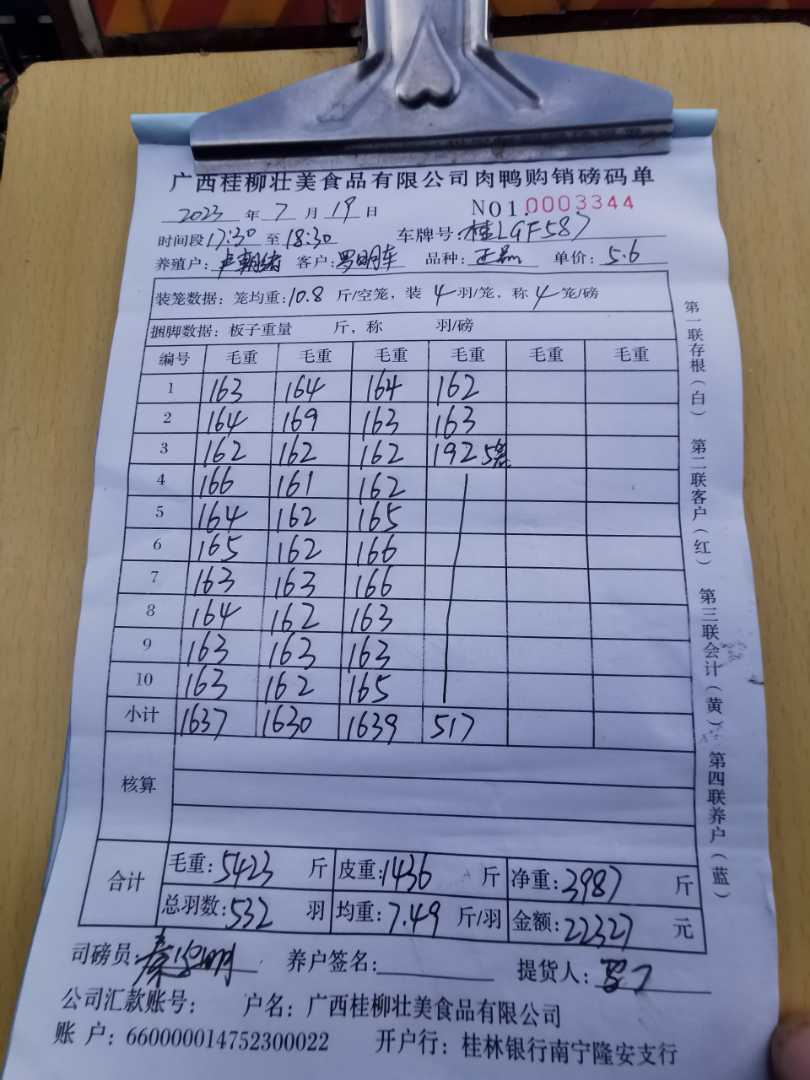 广西桂柳壮美食品有限公司肉鸭购销磅码单
2023 年 7 月 19 日 NO1.0003344
时间段17:30 至 18:30 车牌号:桂LGF587
养殖户: 卢朝绪 客户: 罗明车 品种: 正品 单价: 5.6
装笼数据: 笼均重: 10.8 斤/空笼, 装 4 羽/笼, 称 4 笼/磅
捆脚数据: 板子重量 斤, 称 羽/磅
编号 毛重 毛重 毛重 毛重 毛重 毛重
1 163 164 164 162
2 164 169 163 163
3 162 162 162 192 5笼
4 166 161 162
5 164 162 165
6 165 162 166
7 163 163 166
8 164 162 163
9 163 163 163
10 163 162 165
小计 1637 1630 1639 517
核算
合计 毛重: 5423 斤 皮重: 1436 斤 净重: 3987 斤
总羽数: 532 羽 均重: 7.49 斤/羽 金额: 22327 元
司磅员: 养户签名: 提货人:
公司汇款账号: 户名: 广西桂柳壮美食品有限公司
账 户: 660000014752300022 开户行: 桂林银行南宁隆安支行
第一联存根(白) 第二联客户(红) 第三联会计(黄) 第四联养户(蓝)